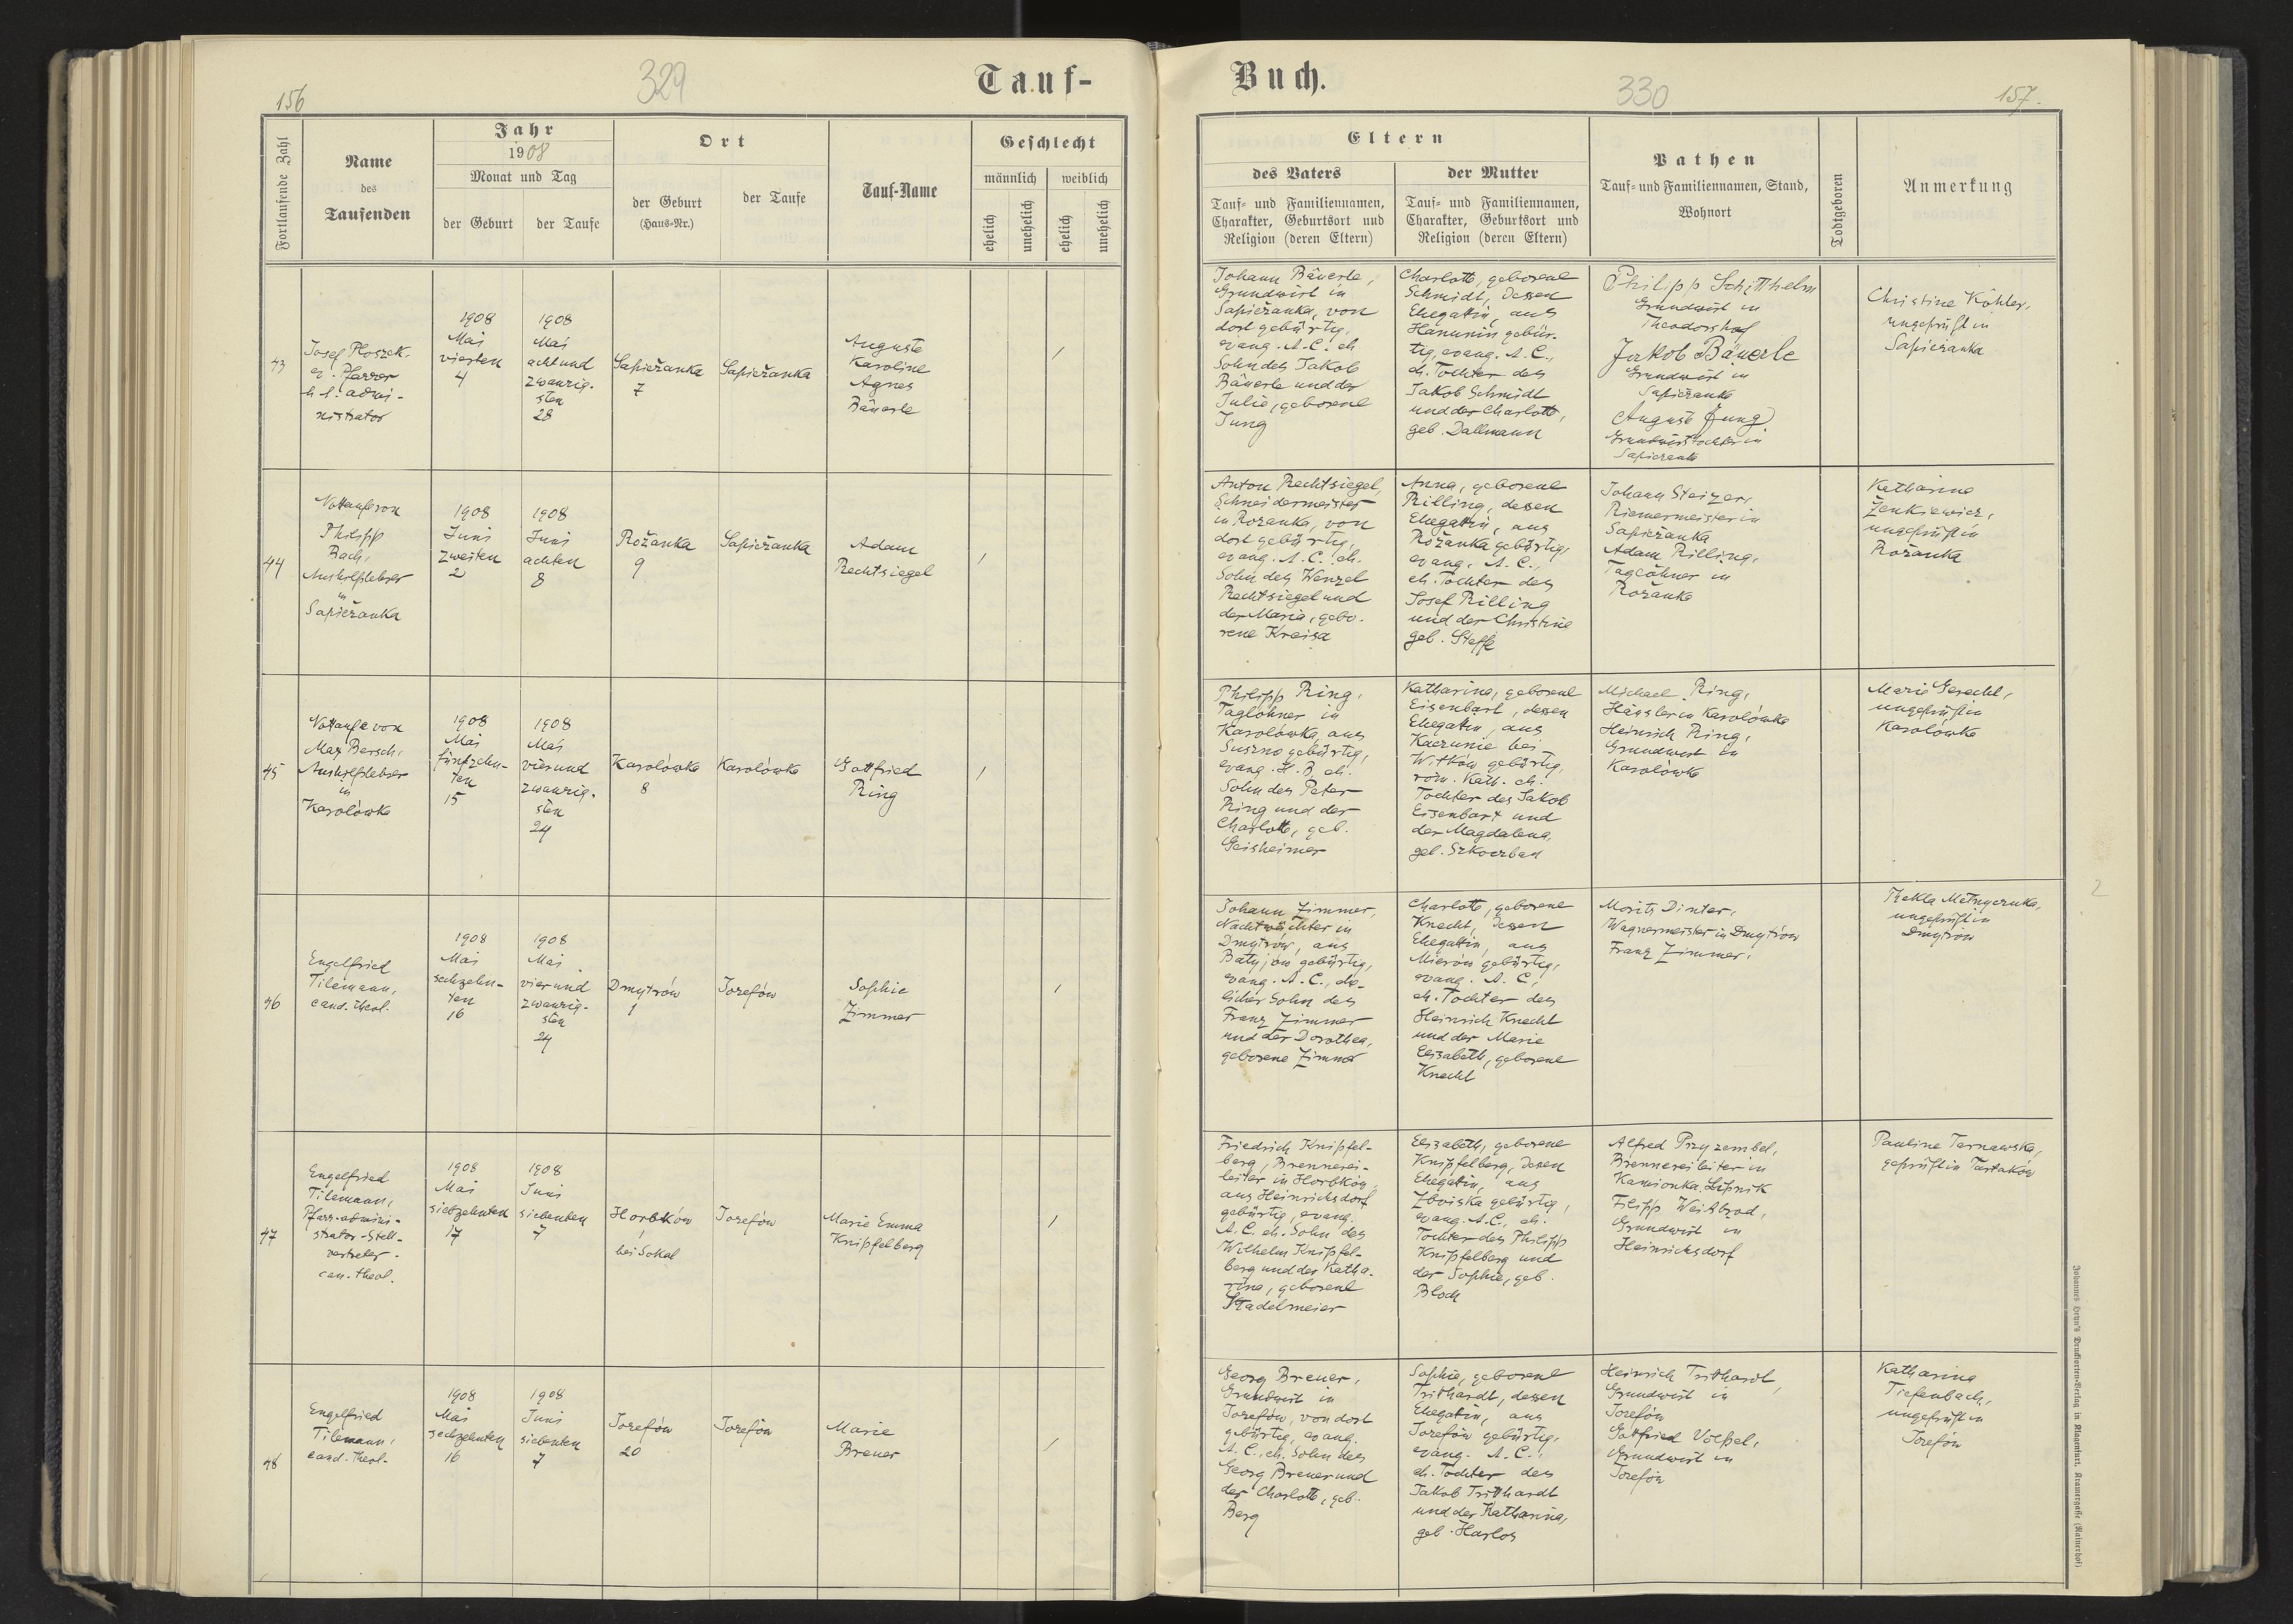 156
329
Tauf-
Fortlaufende Zahl
Name
des
Taufenden
Jahr
1908
Monat und Tag
der Geburt
der Taufe
Ort
der Geburt
(Haus-Nr.)
der Taufe
Tauf-Name
Geschlecht
männlich
weiblich
ehelich
unehelich
ehelich
unehelich
43
Josef Ploszek.
ev. Pfarrer
h. l. admi-
nistrator
1908
Mai
vierten
4
1908
Mai
achtund
zwanzig-
sten
28
Sapieżanka
7
Sapieżanka
Auguste
Karoline
Agnes
Bäuerle
/
44
Nottaufe von
Philipp
Bach,
Aushilfslehrer
in
Sapieżanka
1908
Juni
zweiten
2
1908
Juni
achten
8
Rożanka
9
Sapieżanka
Adam
Rechtsiegel
/
45
Nottaufe von
Max Bersch,
Aushilfslehrer
in
Karolówka
1908
Mai
fünfzehn-
ten
15
1908
Mai
vierund
zwanzig-
sten
24
Karolówka
8
Karolówka
Gottfried
Ring
/
46
Engelfried
Tilemann,
cand. theol.
1908
Mai
sechzehn-
ten
16
1908
Mai
vierund
zwanzig-
sten
24
Dmytrów
1
Jozefów
Sophie
Zimmer
/
47
Engelfried
Tilemann,
Pfarr-admini-
strator-Stell-
vertreter-
can. theol.
1908
Mai
siebzehnten
17
1908
Juni
siebenten
7
Horbków
1
bei Sokal
Jozefów
Marie Emma
Knipfelberg
/
48
Engelfried
Tilemann,
cand. theol.
1908
Mai
sechzehnten
16
1908
Juni
siebenten
7
Jozefów
20
Jozefów
Marie
Breuer
/
Buch.
330
157.
Eltern
des Vaters
Tauf- und Familiennamen,
Charakter, Geburtsort und
Religion (deren Eltern)
der Mutter
Tauf- und Familiennamen,
Charakter, Geburtsort und
Religion (deren Eltern)
Pathen
Tauf- und Familiennamen, Stand,
Wohnort
Todtgeboren
Anmerkung
Johann Bäuerle,
Grundwirt in
Sapieżanka, von
dort gebürtig,
evang. A. C. eh.
Sohn des Jakob
Bäuerle und der
Julie, geborene
Jung
Charlotte, geborene
Schmidt, dessen
Ehegattin, aus
Hanunin gebür-
tig, evang. A. C.,
eh. Tochter des
Jakob Schmidt
und der Charlotte,
geb. Dallmann
Philipp Schitthelm
Grundwirt in
Theodorshof
Jakob Bäuerle
Grundwirt in
Sapieżanka
Auguste Jung
Grundwirtstochter in
Sapieżanka
Christine Köhler,
ungeprüft in
Sapieżanka
Anton Rechtsiegel,
Schneidermeister
in Rożanka, von
dort gebürtig,
evang. A. C. eh.
Sohn des Wenzel
Rechtsiegel und
der Maria, gebo-
rene Kreisa
Anna, geborene
Rilling, dessen
Ehegattin, aus
Rożanka gebürtig,
evang. A. C.,
eh. Tochter des
Josef Rilling
und der Christine
geb. Steffe
Johann Steizer,
Riemermeister in
Sapieżanka
Adam Rilling,
Taglöhner in
Rożanka
Katharina
Żenkiewicz,
ungeprüft in
Rożanka
Philipp Ring,
Taglöhner in
Karolówka, aus
Suszno gebürtig,
evang. H. B. eh.
Sohn des Peter
Ring und der
Charlotte, geb.
Geisheimer
Katharina, geborene
Eisenbart, dessen
Ehegattin, aus
Kaczunie bei
Witków gebürtig,
röm. Kath. eh.
Tochter des Jakob
Eisenbart und
der Magdalena,
geb. Szkoerban
Michael Ring,
Häusler in Karolówka
Heinrich Ring,
Grundwirt in
Karolówka
Marie Gerecht,
ungeprüft in
Karolówka
Johann Zimmer,
Nachtwächter in
Dmytrów, aus
Batyjów gebürtig,
evang. A. C., ehe-
licher Sohn des
Franz Zimmer
und der Dorothea,
geborene Zimmer
Charlotte, geborene
Knecht, dessen
Ehegattin, aus
Mierów gebürtig,
evang. A. C.,
eh. Tochter des
Heinrich Knecht
und der Marie
Elisabeth, geborene
Knecht
Moritz Dinter,
Wagnermeister in Dmytrów
Franz Zimmer,
Thekla Metnyczuka,
ungeprüft in
Dmytrów
2
Friedrich Knipfel-
berg, Brennerei-
leiter in Horbków,
aus Heinrichsdorf
gebürtig, evang.
A. C. eh. Sohn des
Wilhelm Knipfel-
berg und der Katha-
rina, geborene
Stadelmeier
Elisabeth, geborene
Knipfelberg, dessen
Ehegattin, aus
Zboiska gebürtig,
evang. A. C., eh.
Tochter des Philipp
Knipfelberg und
der Sophie, geb.
Bloch
Alfred Przyzembel,
Brennereileiter in
Kamionka Lipnik
Filipp Weissbrod,
Grundwirt in
Heinrichsdorf
Pauline Tarnawska,
geprüft in Tartaków
Georg Breuer,
Grundwirt in
Jozefów, von dort
gebürtig, evang.
A. C., eh. Sohn des
Georg Breuer und
der Charlotte, geb.
Berg
Sophie, geborene
Tritthardt, dessen
Ehegattin, aus
Jozefów gebürtig,
evang. A. C.,
eh. Tochter des
Jakob Tritthardt
und der Katharina,
geb. Harlos
Heinrich Tritthardt,
Grundwirt in
Jozefów
Gottfried Voelpel,
Grundwirt in
Jozefów
Katharina
Tiefenbach,
ungeprüft in
Jozefów
Johannes Heyn's Drucksorten-Verlag in Klagenfurt, Kramergasse (Rainerhof)